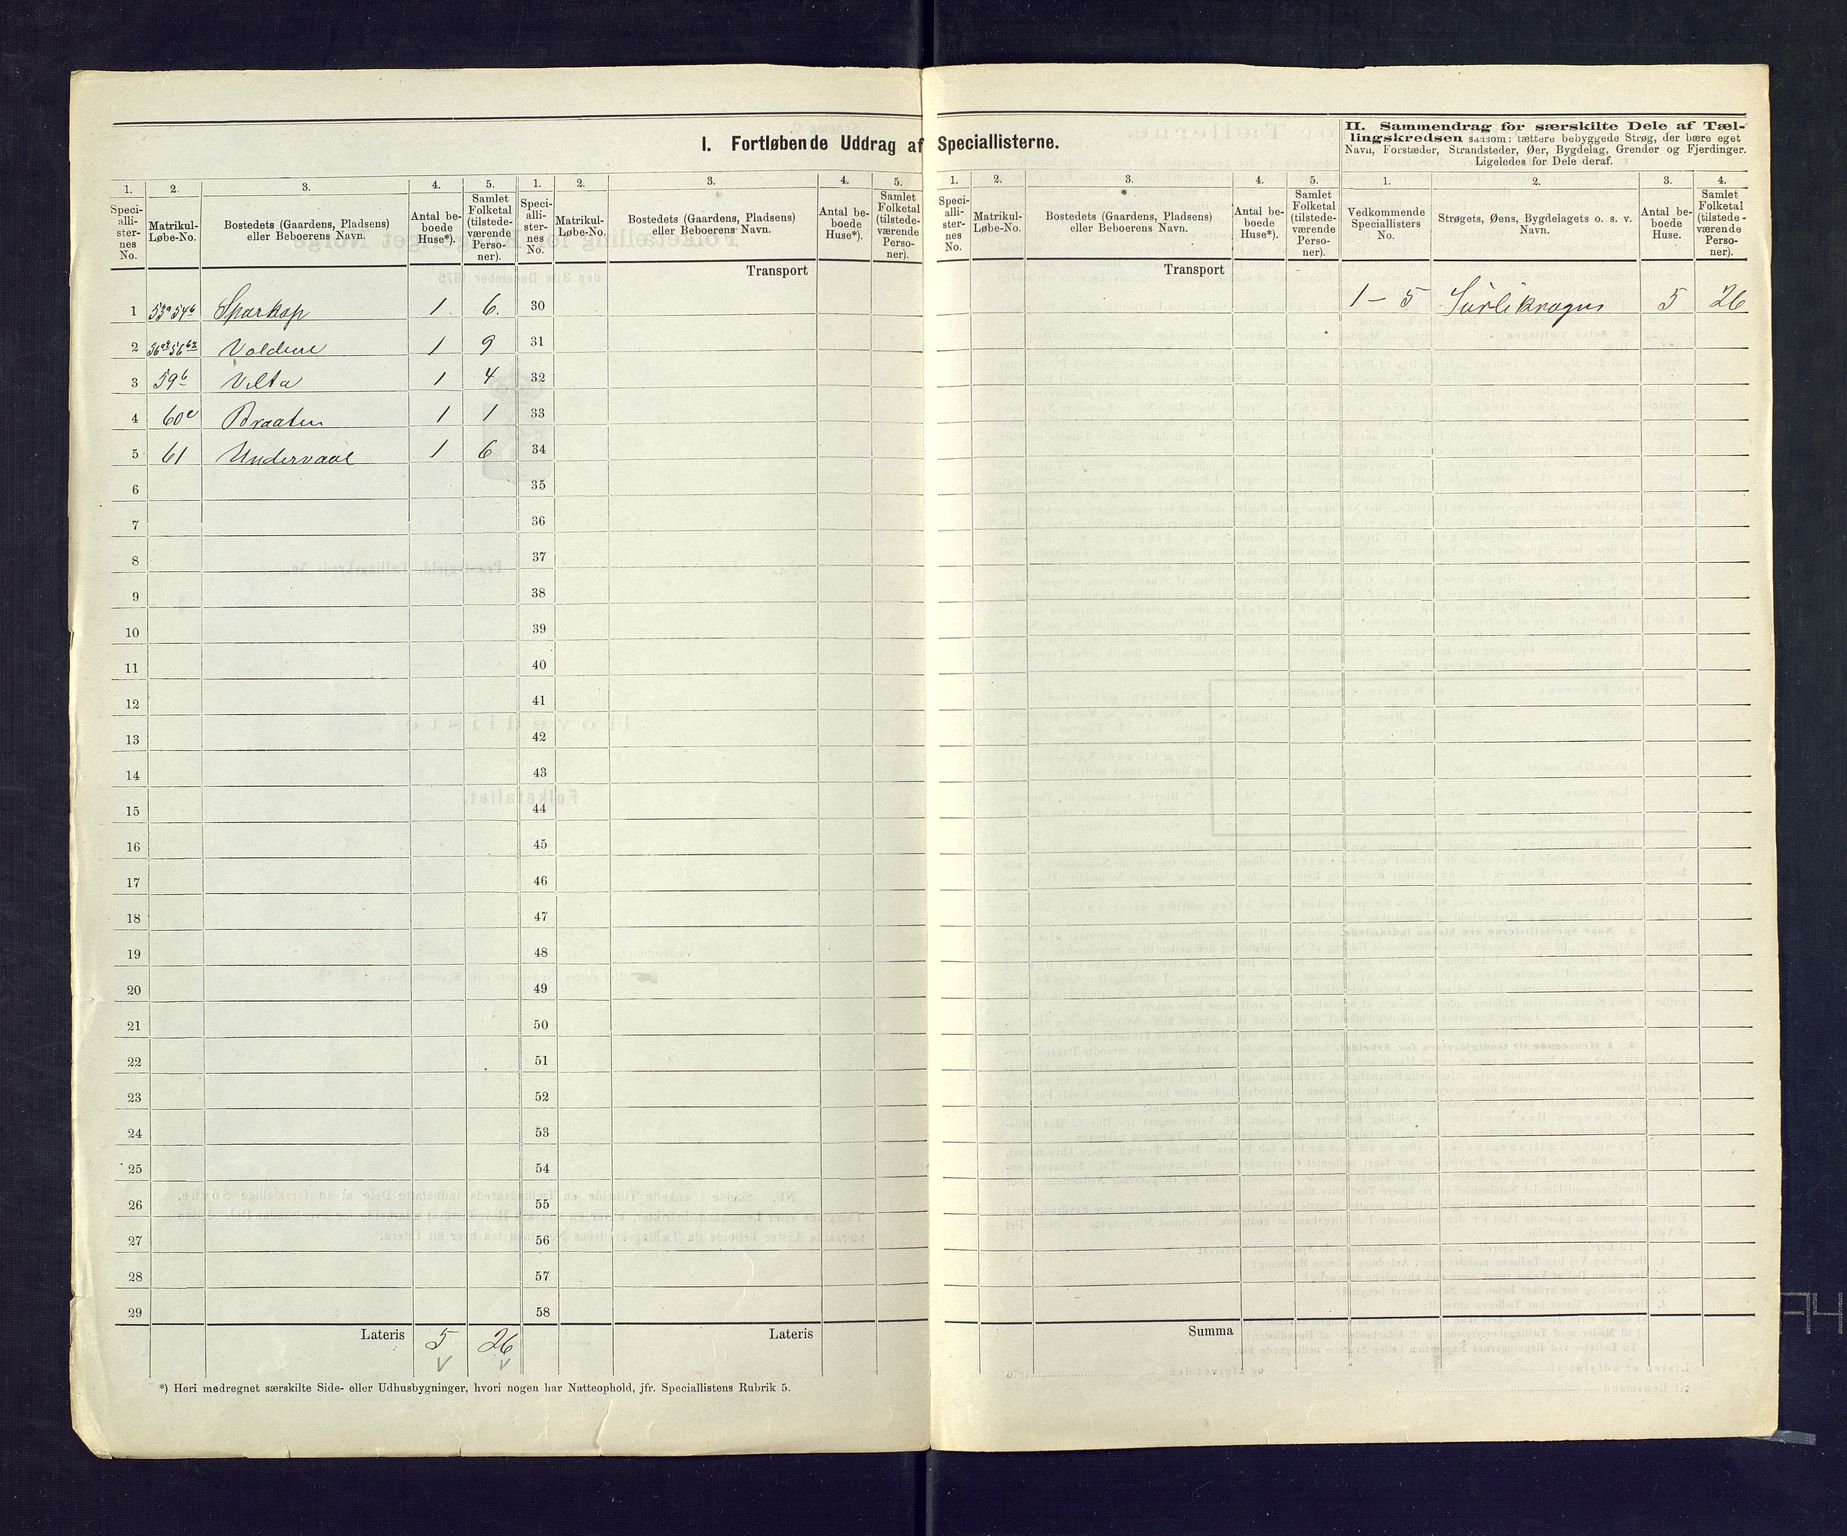 I. Fortløbende Uddrag af Speciallisterne.
II. Sammendrag for særskilte Dele af Tæl-
lingskredsen saasom: tættere bebyggede Strøg, der bære eget
Navn, Forstæder, Strandsteder, Øer, Bygdelag, Grender og Fjerdinger.
Ligeledes for Dele deraf.
1. 2. 3. 4. 5. 1. 2. 3. 4. 5. 1. 2. 3. 4. 5. 1. 2. 3. 4.
Speci-alli-ster-nes No. Matrikul-Løbe-No. Bostedets (Gaardens, Pladsens) eller Beboerens Navn. Antal be-boede Huse*). Samlet Folketal (tilstede-værende Perso-ner).
Speci-alli-ster-nes No. Matrikul-Løbe-No. Bostedets (Gaardens, Pladsens) eller Beboerens Navn. Antal be-boede Huse*). Samlet Folketal (tilstede-værende Perso-ner).
Speci-alli-ster-nes No. Matrikul-Løbe-No. Bostedets (Gaardens, Pladsens) eller Beboerens Navn. Antal be-boede Huse*). Samlet Folketal (tilstede-værende Perso-ner).
Vedkommende Speciallisters No. Strøgets, Øens, Bygdelagets o. s. v. Navn. Antal be-boede Huse. Samlet Folketal (tilstede-værende Perso-ner).
Transport Transport
1 53a 54b Sparksp 1 6. 30 1 – 5 5 26
2 Voldene 1 9 31
3 59b Velta 1 4 32
4 60c Braaten 1 1 33
5 61 1 6 34
6 35
7 36
8 37
9 38
10 39
11 40
12 41
13 42
14 43
15 44
16 45
17 46
18 47
19 48
20 49
21 50
22 51
23 52
24 53
25 54
26 55
27 56
28 57
29 58
Lateris 5 26 Lateris Summa
*) Heri medregnet særskilte Side- eller Udhusbygninger, hvori nogen har Natteophold, jfr. Speciallistens Rubrik 5.